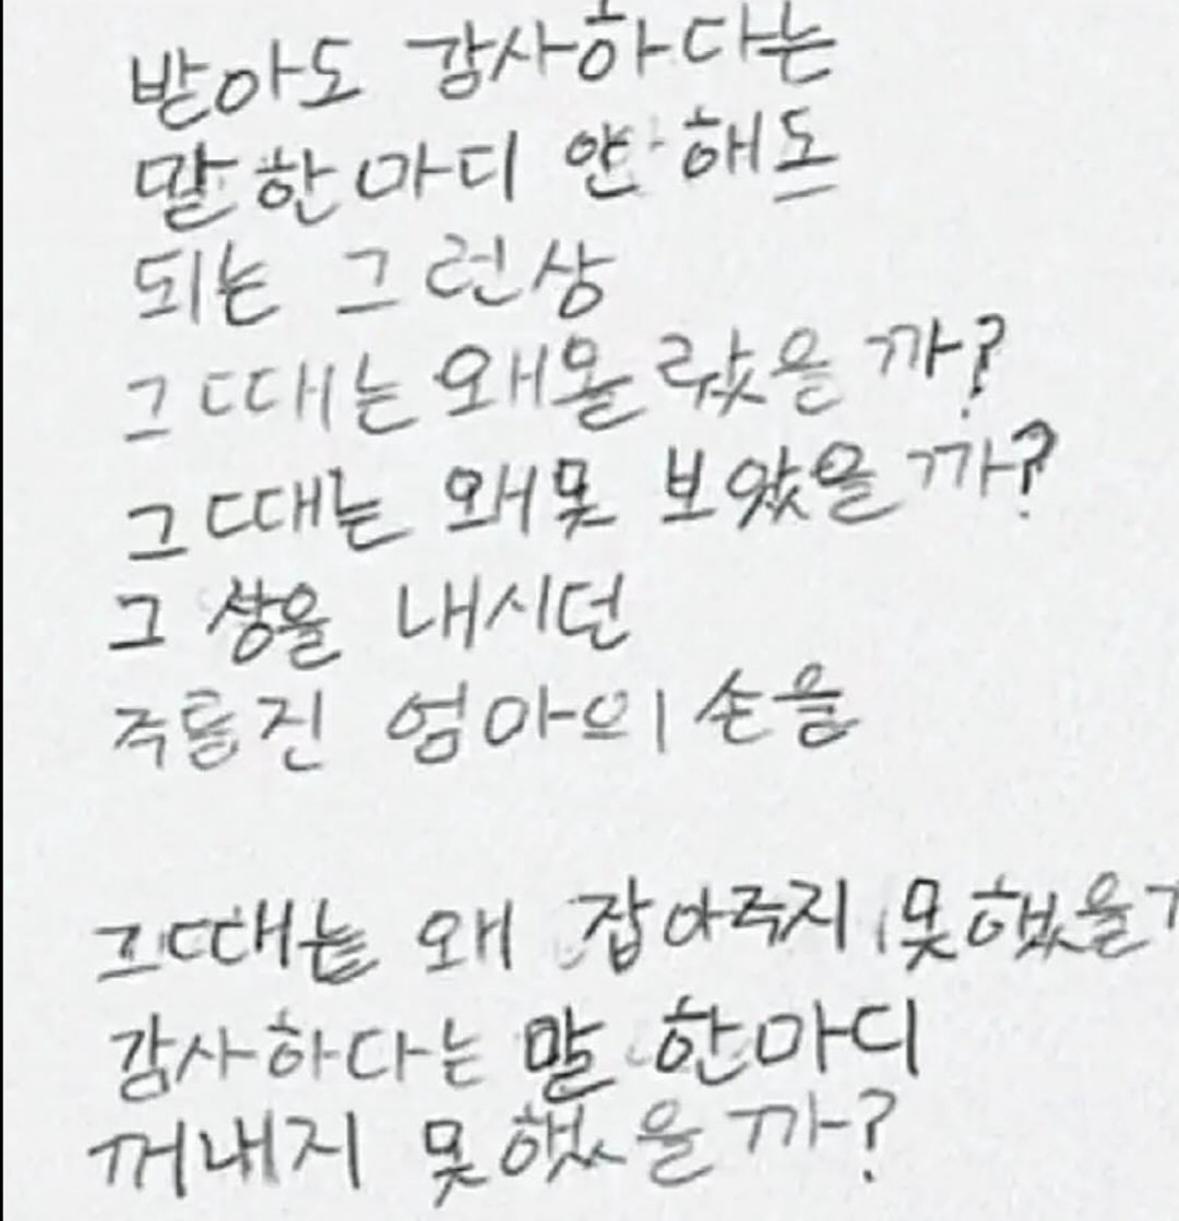 받아도 감사하다는
말한마디 안 해도
되는 그런상
그때는 왜 몰랐을까?
그때는 왜 못 보았을까?
그 상을 내시던
주름진 엄마의 손을
그때는 왜 잡아주지 못했을
감사하다는 말 한마디
꺼내지 못했을까?